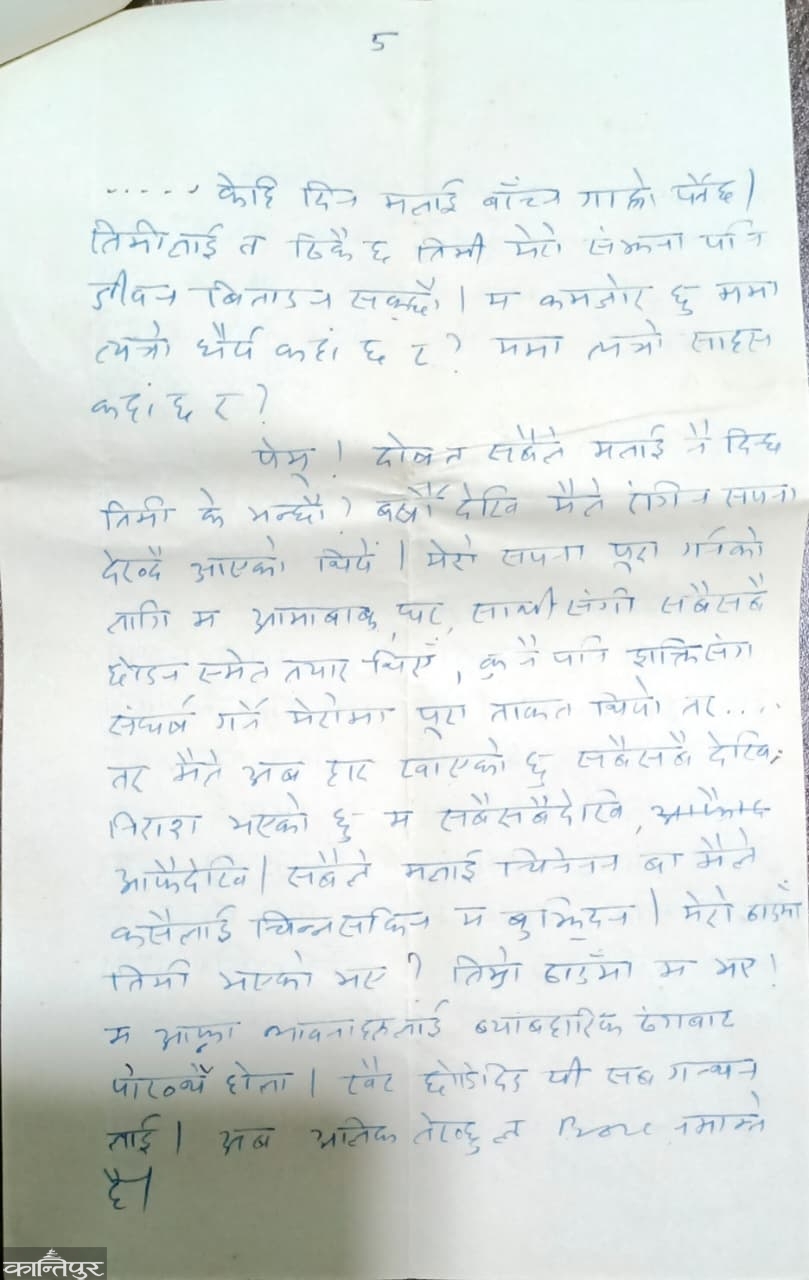 5
..... केहि दिन मलाई बाँच्न गाह्रो पर्नेछ।
तिमीलाई त ठिकै छ तिमी मेरो संझना पनि
जीवन बिताउन सक्छौ। म कमजोर छु ममा
त्यत्रो धैर्य कहां छ र? ममा त्यत्रो साहस
कहां छ र?
पेमू! दोष त सबैले मलाई नै दिन्छ
तिमी के भन्छौ? बर्षौं देखि मैले रंगिन सपना
देख्दै आएको थियें। मेरो सपना पूरा गर्नको
लागि म आमाबाबु, घर, साथीसंगी सबैसबै
छोड्न समेत तयार थिएँ, कुनै पनि शक्तिसंग
संघर्ष गर्ने मेरोमा पूरा ताकत थियो तर....
तर मैले अब हार खाएको छु सबैसबै देखि,
निराश भएको छु म सबैसबैदेखि,
आफैदेखि। सबैले मलाई चिनेनन् बा मैले
कसैलाई चिन्नसकिन म बुझ्दिन। मेरो ठाउँमाँ
तिमी भएको भए? तिम्रो ठाउँमा म भए!
म आफ्ना भावनाहरुलाई ब्याबहारिक ढंगबाट
पोख्थ्यें होला। खैर छोडिदिउ यी सब गन्थन
लाई। अब अलिक लेख्छु ल Bore नमान्ने
है।
कान्तिपुर